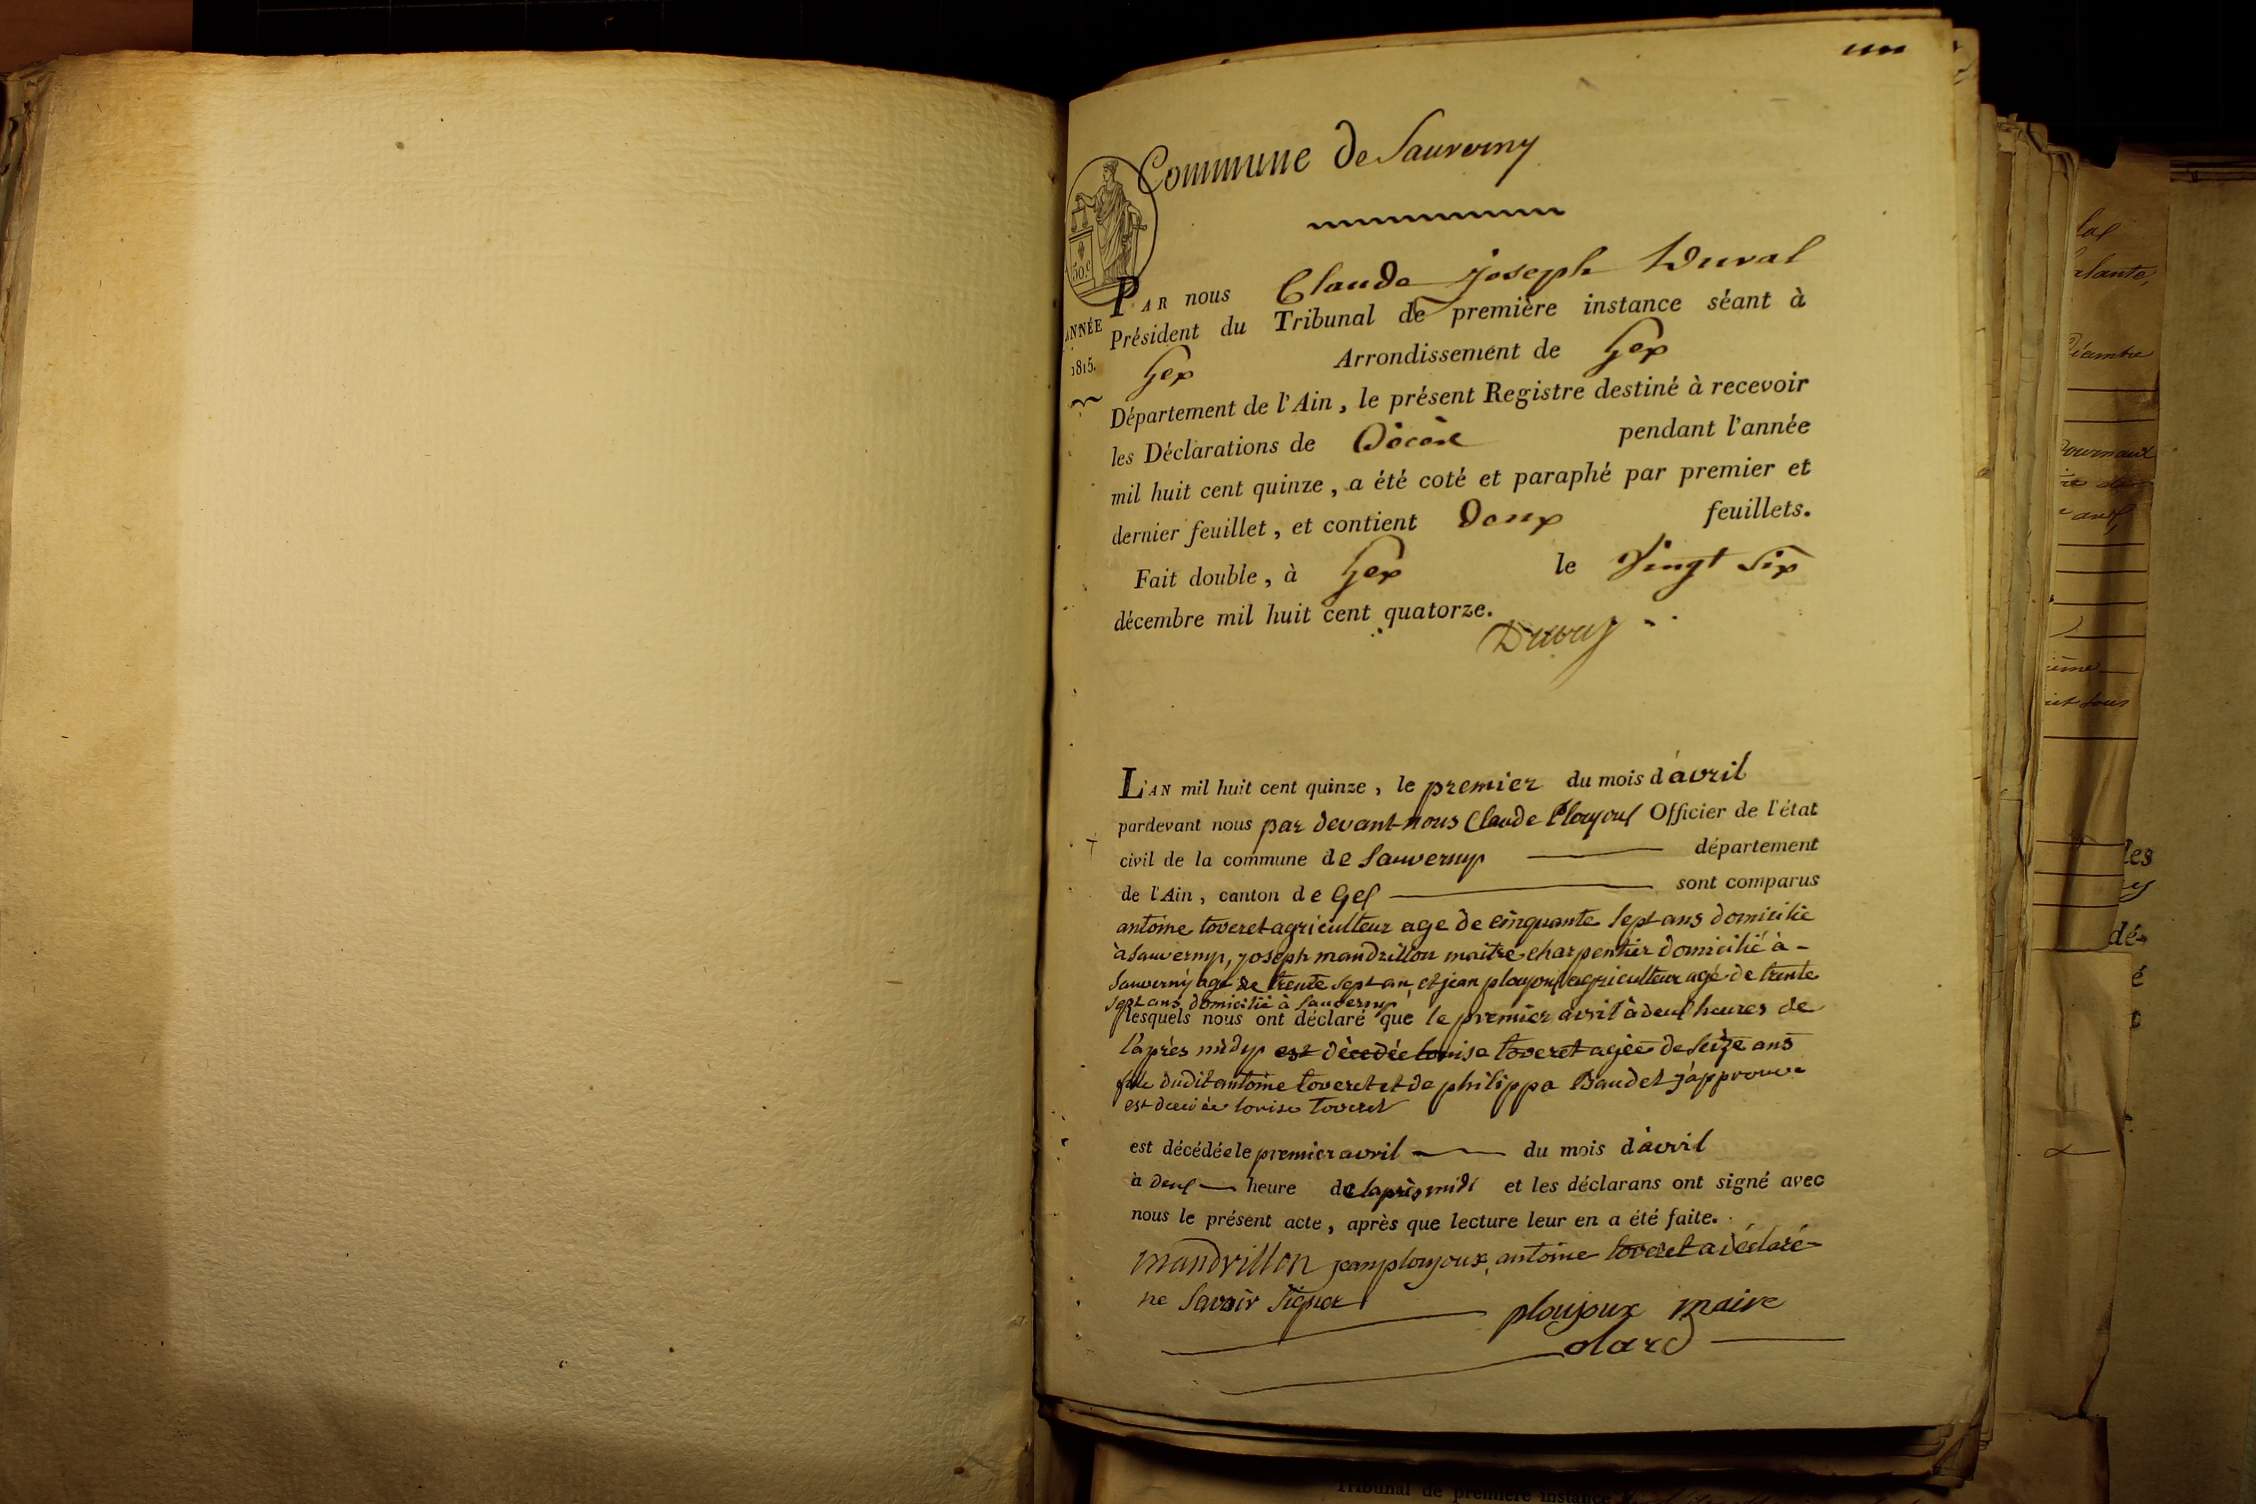 un
Commune de Sauverny
50.c
PAR nous Claude Joseph Duval
Président du Tribunal de première instance séant à
Gex Arrondissement de Gex
ANNÉE
1815.
Département de l'Ain, le présent Registre destiné à recevoir
les Déclarations de Décès pendant l'année
mil huit cent quinze, a été coté et paraphé par premier et
dernier feuillet, et contient Deux feuillets.
Fait double, à Gex le Vingt Six
décembre mil huit cent quatorze.
Duval
L'AN mil huit cent quinze, le premier du mois d'avril
pardevant nous par devant nous Claude Ploujoux Officier de l'état
civil de la commune de Sauverny département
de l'Ain, canton de Gex sont comparus
antoine toveret agriculteur age de cinquante sept ans domicilie
à Sauverny, joseph mandrillon maitre charpentier domicilié à -
Sauverny agé de trente sept an, et jean ploujoux agriculteur agé de trente
sept ans domicilié à Sauverny
lesquels nous ont déclaré que le premier avril à deux heures de
l'après midy est décedée louise toveret agée de Seize ans
fille dudit antoine toveret et de philippa Baudet j'approuve
est decedée louise toveret
est décédée le premier avril du mois d'avril
à deux heure de l'après midi et les déclarans ont signé avec
nous le présent acte, après que lecture leur en a été faite.
mandrillon jean ploujoux, antoine toveret a déclaré
ne Savoir Signer
ploujoux maire
olard
les
dé-
é
ième
Tribunal de première instance